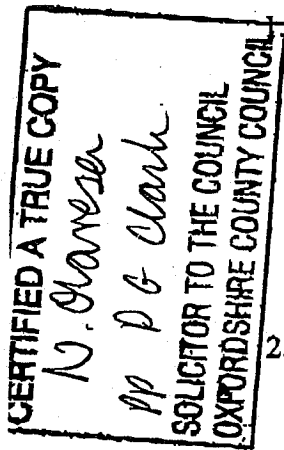 CERTIFIED A TRUE COPY
pp P G Clark.
SOLICITOR TO THE COUNCIL
OXFORDSHIRE COUNTY COUNCIL
2